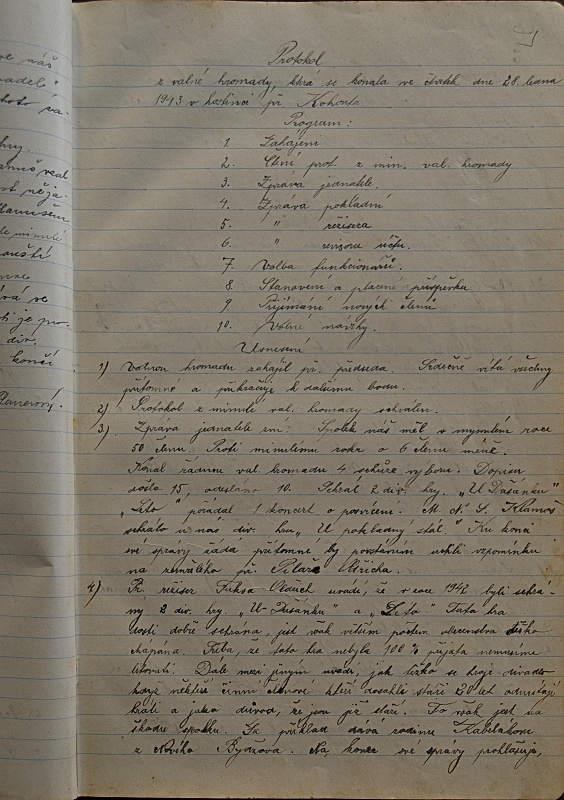 ve náš
vadel
toto va-
hry.
vzal
ve
div.
končí
1
Protokol
z valné hromady, která se konala ve čtvrtek dne 28. ledna
1943 v hostinci př. Kohouta
Program:
1. Zahájení
2. Čtení prot. z min. val. hromady
3. Zpráva jednatele.
4. Zpráva pokladní
5. " režisera
6. " revisorů účtů.
7. Volba funkcionářů.
8. Stanovení a placení příspěvků
9. Přijímání nových členů
10. Volné návrhy.
Usnesení
1) Valnou hromadu zahájil př. předseda. Srdečně vítá všechny
přítomné a přikračuje k dalšímu bodu.
2) Protokol z minulé val. hromady schválen.
3) Zpráva jednatele zní: Spolek náš měl v minulém roce
50 členů. Proti minulému roku o 6 členů méně.
Konal řádnou val. hromadu 4 schůze výboru. Dopisů
došlo 15, odesláno 10. Sehrál 2 div. hry. „U Dušánků"
„Léto" pořádal 1 koncert o posvícení. M. N. S. Klamoš
sehrálo u nás div. hru „U pokladny stál." Ku konci
své zprávy žádá přítomné by povstáním uctili vzpomínku
na zemřelého př. Pilaře Oldřicha.
4) Př. režiser Fuksa Oldřich uvádí, že v roce 1942 byli sehrá-
ny 2 div. hry. „U Dušánků" a „Léto" Tato hra
dosti dobře sehrána, jest však větším počtem obecenstva těžko
chápána. Třeba, že tato hra nebyla 100% přijata nemusíme
litovati. Dále mezi jiným uvádí, jak těžko se hraje divadlo
když někteří činní členové kteří dosáhli stáří 20 let odmítají
hráti a jako důvod, že jsou již staří. To však jest na
škodu spolku. Za příklad dává rodinu Kabelákovu
z Nového Bydžova. Na konec své zprávy prohlašuje,